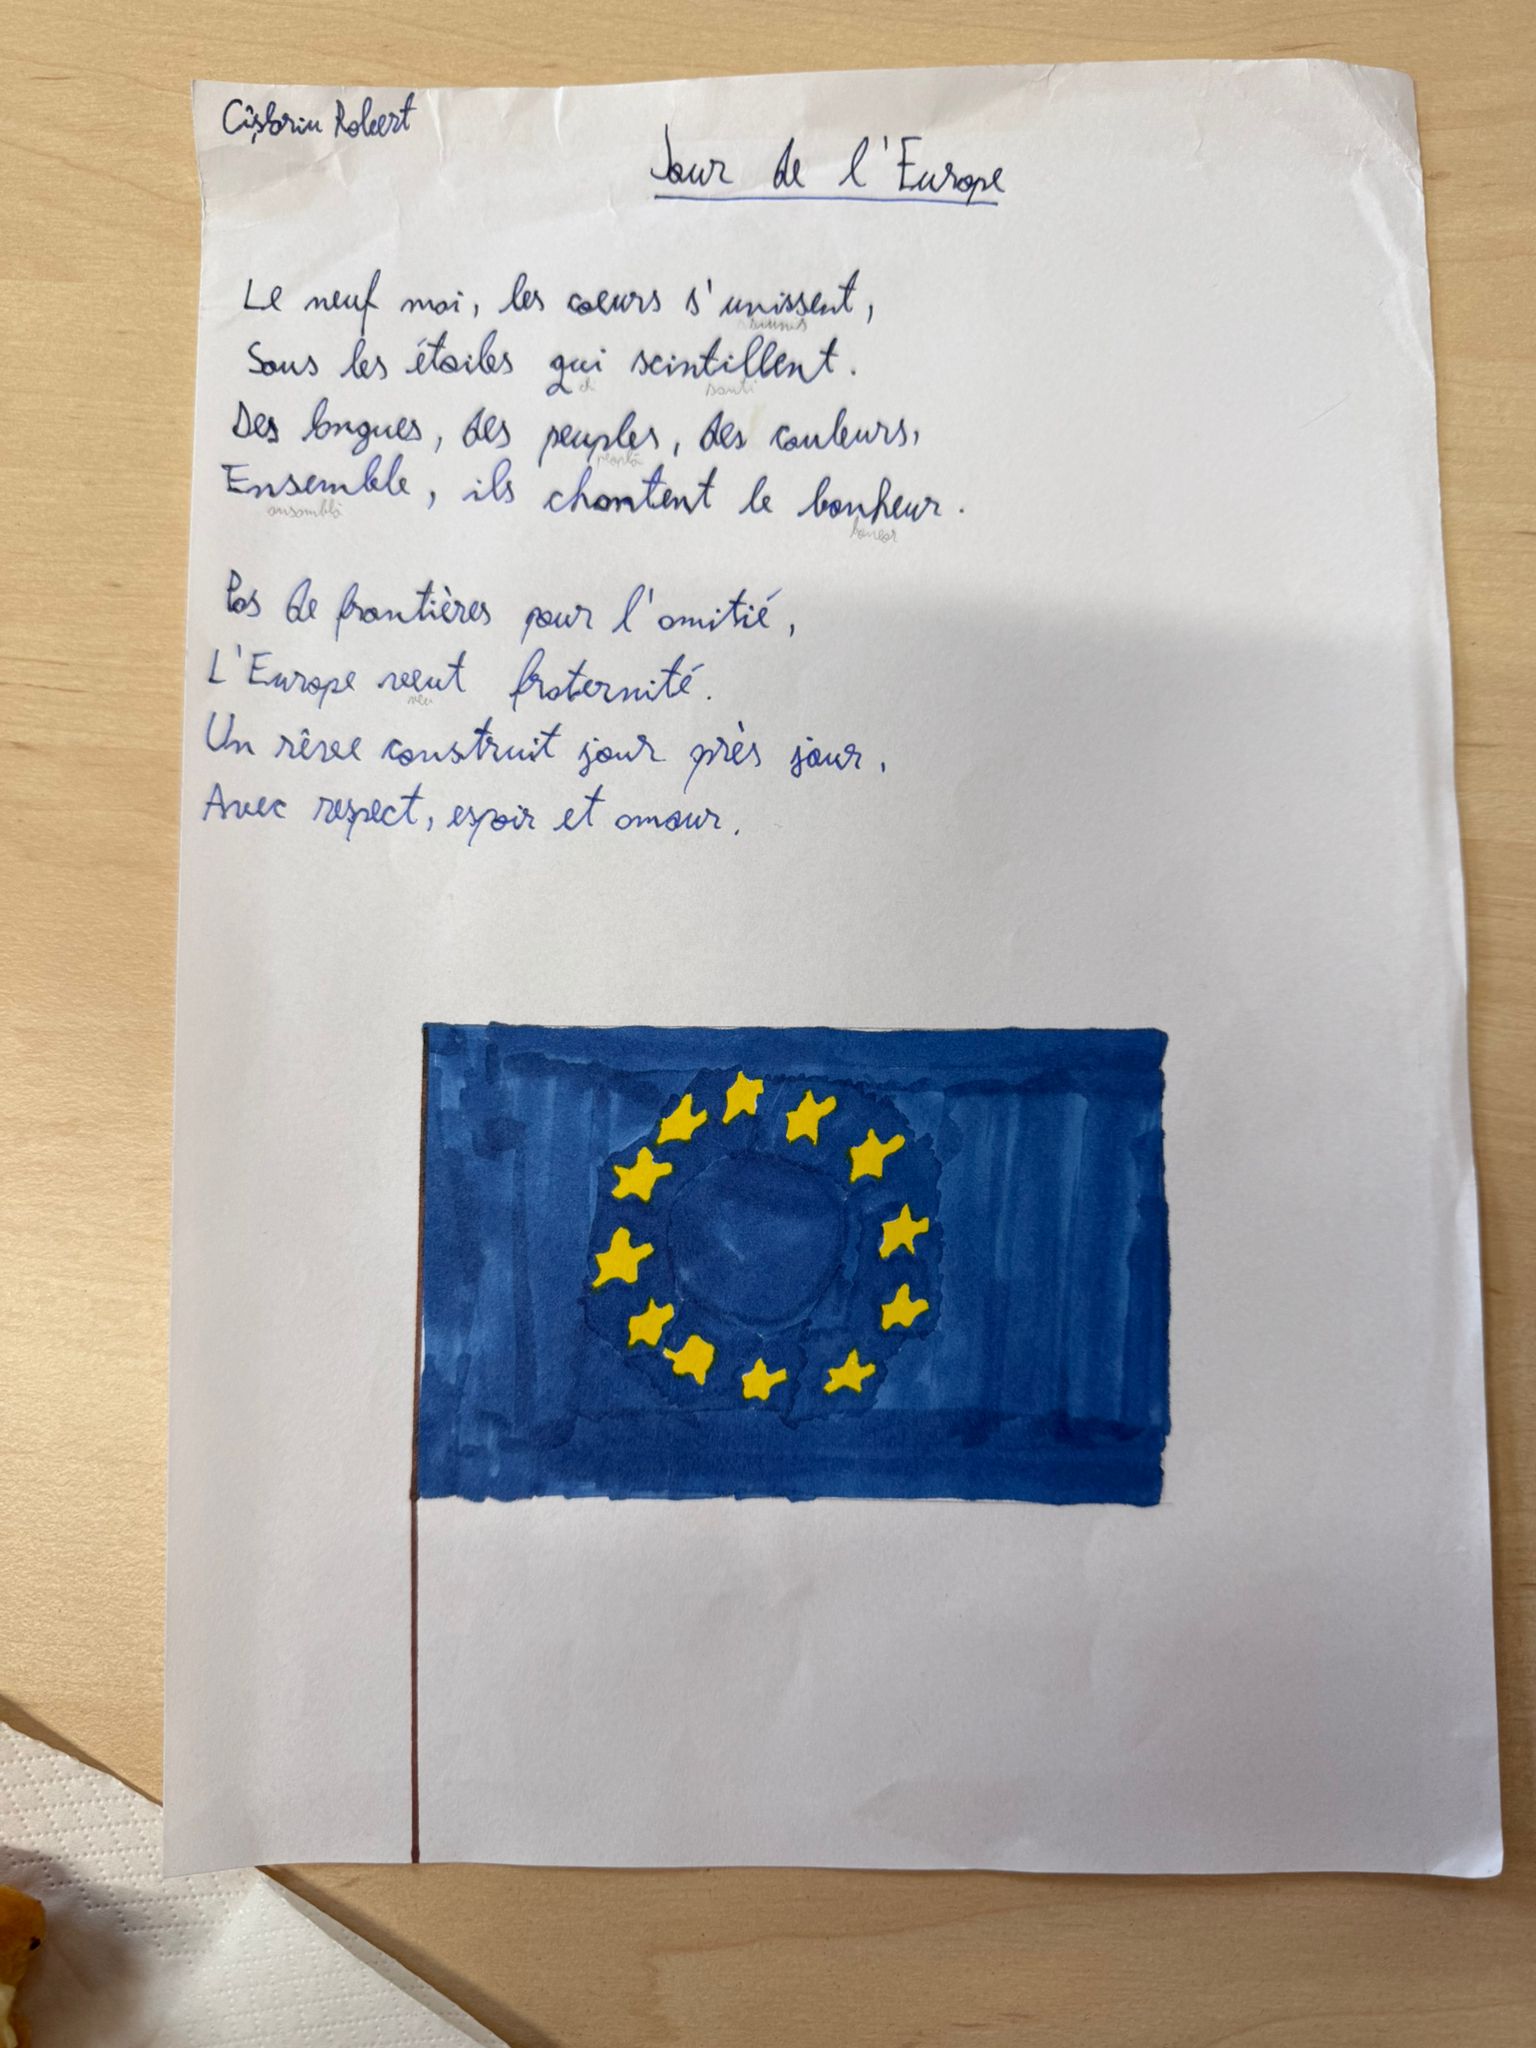 Cîșlariu Robert
Jour de l'Europe
Le neuf mai, les cœurs s'unissent,
Sous les étoiles qui scintillent.
santi
Des langues, des peuples, des couleurs,
peoplă
Ensemble, ils chantent le bonheur.
ansamblă
Pas de frontières pour l'amitié,
L'Europe veut fraternité.
veu
Un rêve construit jour près jour,
Avec respect, espoir et amour.